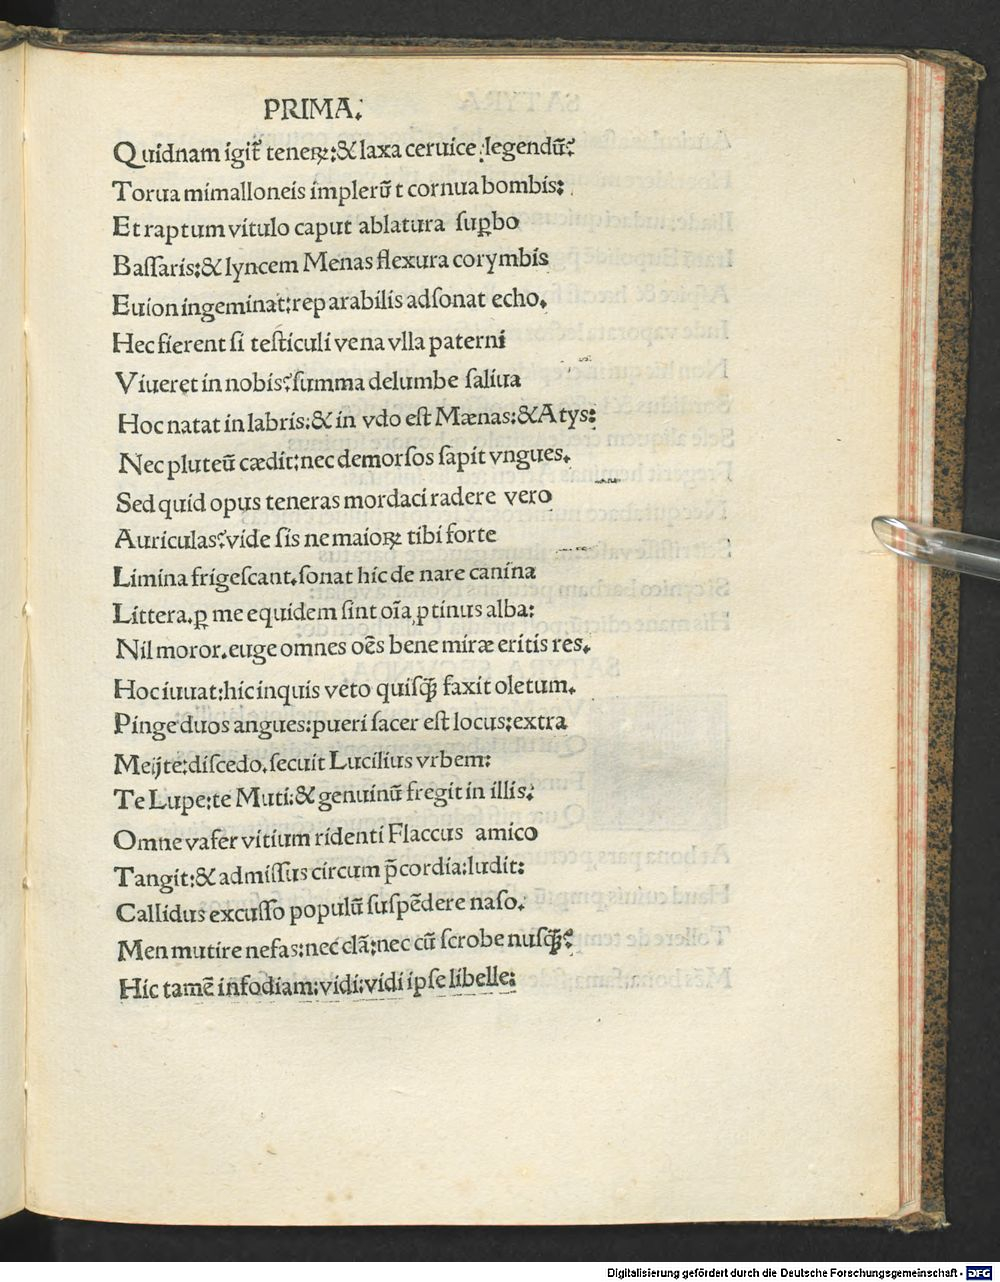 PRIMA.
Quidnam igit᷑ teneꝝ:& laxa ceruice legendū?
Torua mimalloneis implerūt cornua bombis:
Et raptum vitulo caput ablatura ſuꝑbo
Baſſaris:& lyncem Menas flexura corymbis
Euion ingeminat:reparabilis adſonat echo.
Hec fierent ſi teſticuli vena vlla paterni
Viueret in nobis?ſumma delumbe ſaliua
Hoc natat in labris:& in vdo eſt Mænas:& Atys:
Nec pluteū cædit:nec demorſos ſapit vngues.
Sed quid opus teneras mordaci radere vero
Auriculas?vide ſis ne maioꝝ tibi forte
Limina frigeſcant.ſonat hic de nare canina
Littera.ꝑ me equidem ſint oīa ꝓtinus alba:
Nil moror.euge omnes oēs bene miræ eritis res.
Hoc iuuat:hic inquis veto quiſꝙ̃ faxit oletum.
Pinge duos angues:pueri ſacer eſt locus:extra
Meijte:diſcedo.ſecuit Lucilius vrbem:
Te Lupe:te Muti:& genuinū fregit in illis:
Omne vafer vitium ridenti Flaccus amico
Tangit:& admiſſus circum p̄cordia:ludit:
Callidus excuſſo populū ſuſpēdere naſo.
Men mutire nefas:nec clā:nec cū ſcrobe nuſꝙ̃?
Hic tamē infodiam:vidi:vidi ipſe libelle:
Digitalisierung gefördert durch die Deutsche Forschungsgemeinschaft - DFG